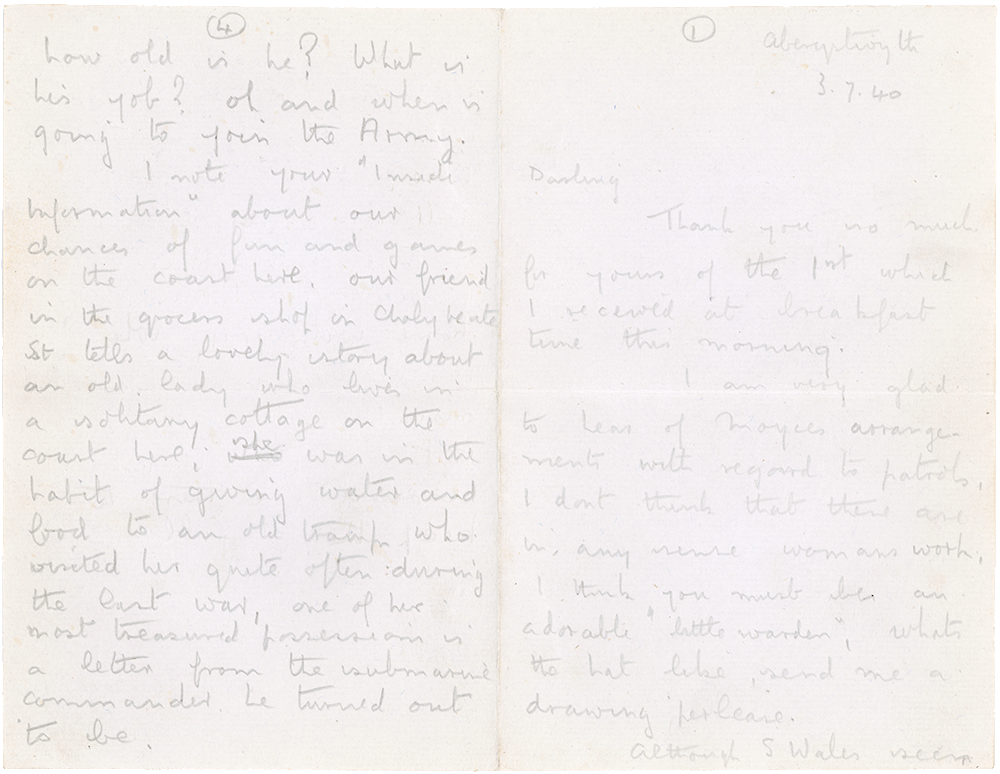 4
how old is he? What is
his job? oh and when is
going to join the Army.
I note your "Inside
Information" about our
chances of fun and games
on the coast here. our friend
in the grocers shop in Chalybeate
St tells a lovely story about
an old lady who lives in
a solitary cottage on the
coast here; she was in the
habit of giving water and
food to an old tramp who
visited her quite often during
the last war, one of her
most treasured possession is
a letter from the submarine
commander he turned out
to be.
1
Aberystwyth
3.7.40
Darling
Thank you so much
for yours of the 1st which
I received at breakfast
time this morning.
I am very glad
to hear of Moyces arrange-
ments with regard to patrols,
I dont think that these are
in any sense womans work,
I think you must be an
adorable "little warden", whats
the hat like, send me a
drawing perlease.
Although S Wales seems